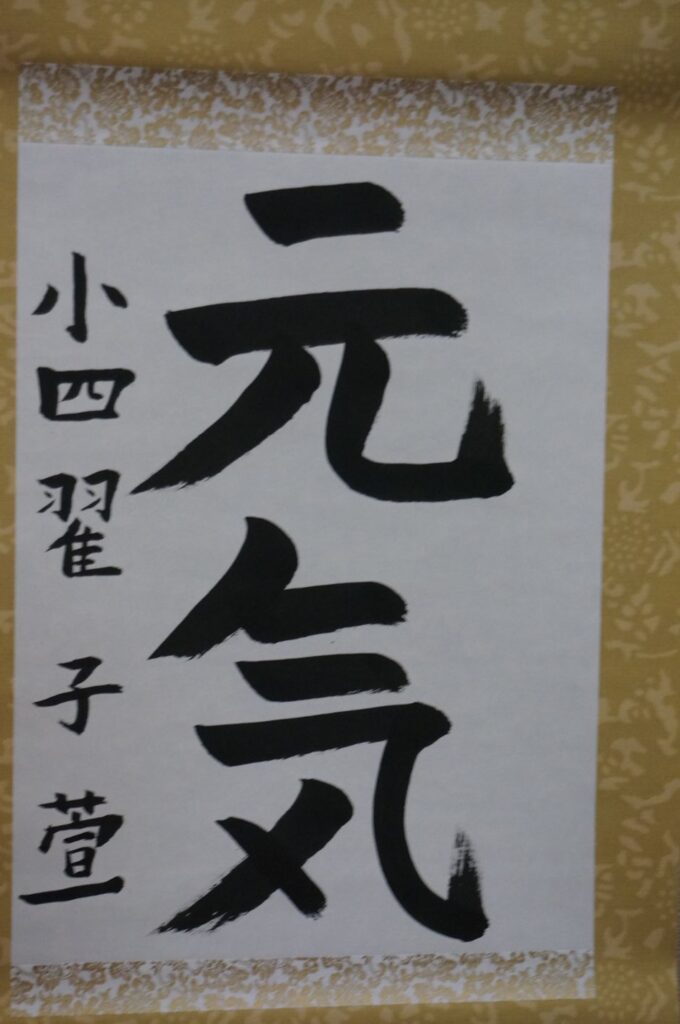 元気
小四 翟 子萱